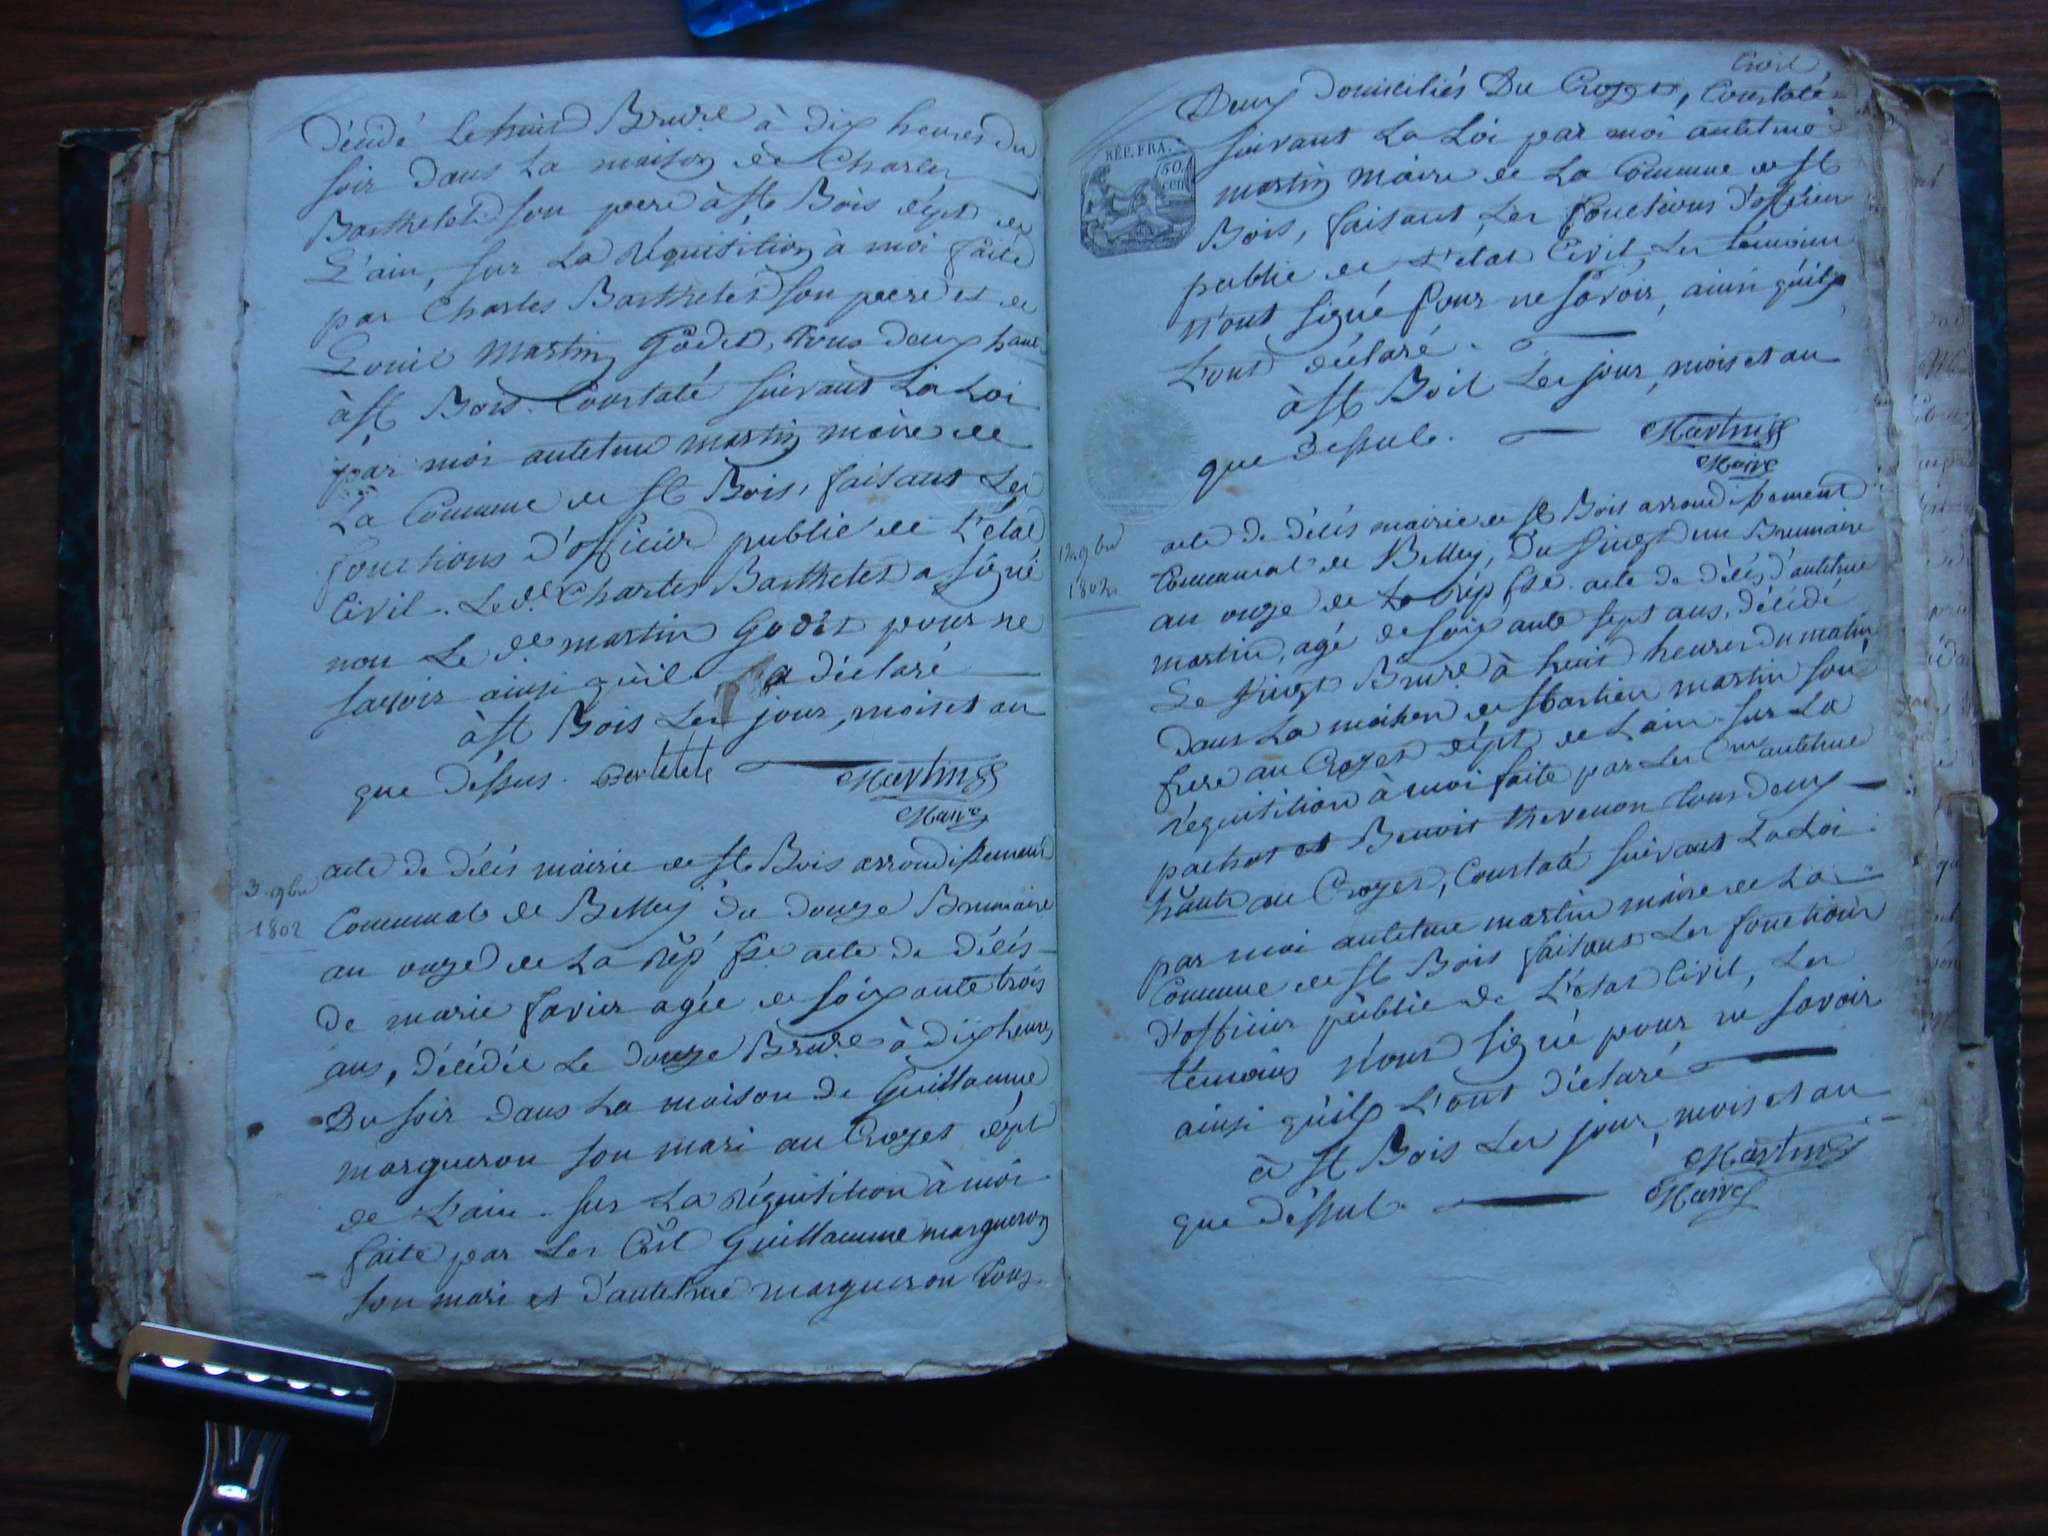 décédé le huit Brure à dix heures du
soir dans la maison de Charles
Barthelet son pere à St Bois dépt de
L'ain, sur la réquisition à moi faite
par Charles Barthelet son pere et de
Louis martin Godet, tous deux habt
à St Bois. Constaté suivant la Loi
par moi antelme martin maire de
La Commune de St Bois, faisant Les
fonctions d'officier public de L'état
Civil. Le d. Charles Barthelet a signé
non Le dt martin Godet pour ne
savoir ainsi qu'il a déclaré
à St Bois Les jour, mois et an
que dessus. Bertelet Martin
Maire
3 9bre
1802
acte de décès mairie de St Bois arrondissement
Communal de Belley du douze Brumaire
an onze de La rép fse acte de décès
de marie favier agée de soixante trois
ans, décédée Le douze Brure à dix heures
Du soir dans La maison de Guillaume
margueron son mari au Croyet dépt
de L'ain. sur La réquisition à moi
faite par Les Guillaume margueron
son mari et d'antelme margueron tous
Civil
Deux domiciliés Du Croyet, Constaté
suivant La Loi par moi antelme
martin maire de La Commune de St
Bois, faisant Les fonctions d'officier
public de L'etat Civil, Les témoins
n'ont signé pour ne savoir, ainsi qu'ils
L'ont déclaré.
à St Bois Les jour, mois et an
que dessus. Martin
Maire
RÉP. FRA.
50.
cen
12 9bre
1802
acte de décès mairie de St Bois arrondissement
Communal de Belley, Du vingt un Brumaire
an onze de La rép fse. acte de décès d'antelme
martin, agé de soixante sept ans, décédé
Le vingt Brure à huit heures du matin
dans La maison de martin son
frere au Croyet dépt de L'ain. sur La
réquisition à moi faite par Les Cns antelme
pachot et Benoit thevenon tous deux
habts au Croyet, Constaté suivant La Loi
par moi antelme martin maire de La
Commune de St Bois faisant Les fonctions
d'officier public de L'etat Civil, Les
témoins n'ont signé pour ne savoir
ainsi qu'ils L'ont déclaré
à St Bois Les jour, mois et an
que dessus. Martin
Maire